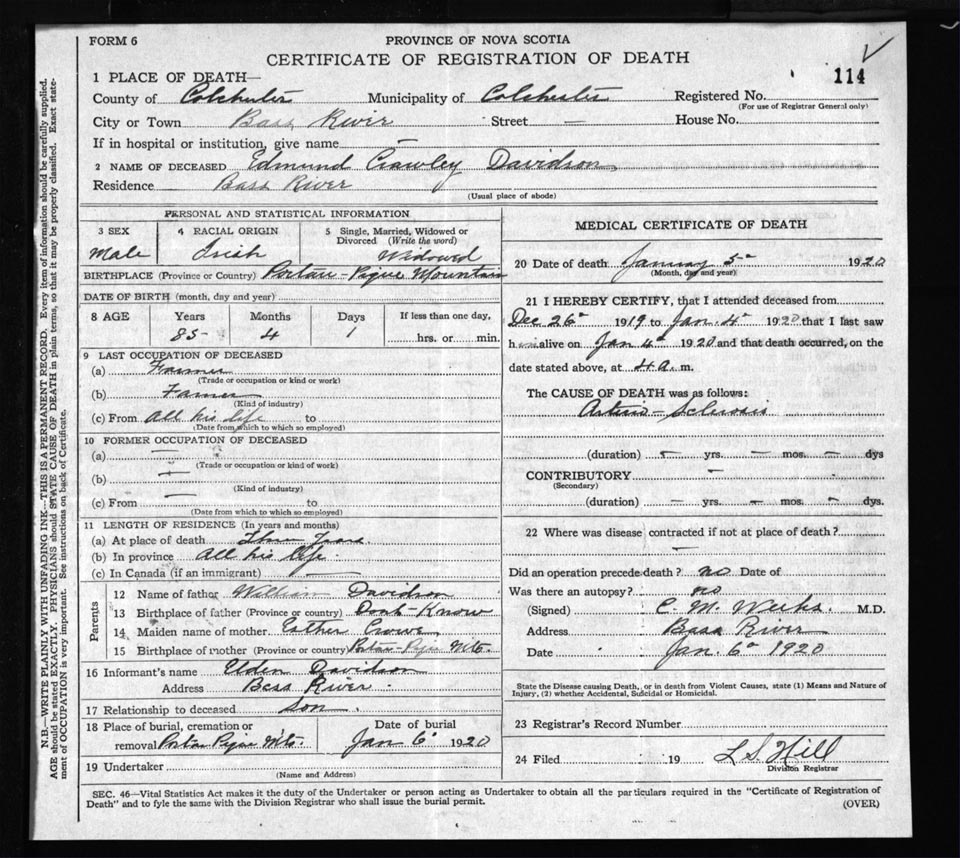 FORM 6
PROVINCE OF NOVA SCOTIA
CERTIFICATE OF REGISTRATION OF DEATH
114
1 PLACE OF DEATH—
County of Colchester Municipality of Colchester Registered No.
(For use of Registrar General only)
City or Town Bass River Street — House No.
If in hospital or institution, give name —
2 NAME OF DECEASED Edmund Crawley Davidson
Residence Bass River
(Usual place of abode)
PERSONAL AND STATISTICAL INFORMATION
3 SEX 4 RACIAL ORIGIN 5 Single, Married, Widowed or Divorced (Write the word)
Male Irish Widowed
BIRTHPLACE (Province or Country) Portau-Pique Mountain
DATE OF BIRTH (month, day and year)
8 AGE Years Months Days If less than one day,
85 4 1 hrs. or min.
9 LAST OCCUPATION OF DECEASED
(a) Farmer
(Trade or occupation or kind or work)
(b) Farmer
(Kind of industry)
(c) From All his life to
(Date from which to which so employed)
10 FORMER OCCUPATION OF DECEASED
(a) —
(Trade or occupation or kind of work)
(b) —
(Kind of industry)
(c) From — to
(Date from which to which so employed)
11 LENGTH OF RESIDENCE (In years and months)
(a) At place of death Three Years
(b) In province All his life
(c) In Canada (if an immigrant) —
Parents
12 Name of father William Davidson
13 Birthplace of father (Province or country) Dont-Know
14 Maiden name of mother Esther Crowe
15 Birthplace of mother (Province or country) Portau-Pique Mts.
16 Informant's name Elden Davidson
Address Bass River
17 Relationship to deceased Son
18 Place of burial, cremation or Date of burial
removal Portau Pique Mts. Jan 6 1920
19 Undertaker
(Name and Address)
MEDICAL CERTIFICATE OF DEATH
20 Date of death January 5 1920
(Month, day and year)
21 I HEREBY CERTIFY, that I attended deceased from
Dec 26 1919 to Jan. 4 1920 that I last saw
h im alive on Jan 4 1920 and that death occurred, on the
date stated above, at 4 a. m.
The CAUSE OF DEATH was as follows:
Arterio-Sclerosis
(duration) — yrs. — mos. — dys
CONTRIBUTORY —
(Secondary)
(duration) — yrs. — mos. — dys.
22 Where was disease contracted if not at place of death?
—
Did an operation precede death? no Date of
Was there an autopsy? no
(Signed) C. M. Weeks M.D.
Address Bass River
Date Jan. 6 1920
State the Disease causing Death, or in death from Violent Causes, state (1) Means and Nature of
Injury, (2) whether Accidental, Suicidal or Homicidal.
23 Registrar's Record Number
24 Filed 19 L S Hill
Division Registrar
SEC. 46—Vital Statistics Act makes it the duty of the Undertaker or person acting as Undertaker to obtain all the particulars required in the "Certificate of Registration of
Death" and to fyle the same with the Division Registrar who shall issue the burial permit. (OVER)
N.B.—WRITE PLAINLY WITH UNFADING INK—THIS IS A PERMANENT RECORD. Every item of information should be carefully supplied.
AGE should be stated EXACTLY. PHYSICIANS should STATE CAUSE OF DEATH in plain terms, so that it may be properly classified. Exact state-
ment of OCCUPATION is very important. See instructions on back of Certificate.